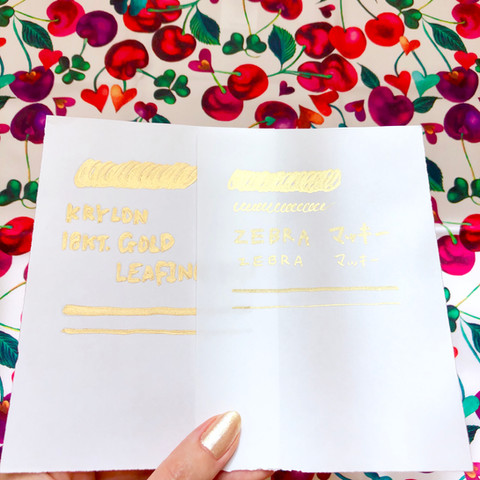 KRYLON
18KT. GOLD
LEAFIN
ZEBRA マッキー
ZEBRA マッキー